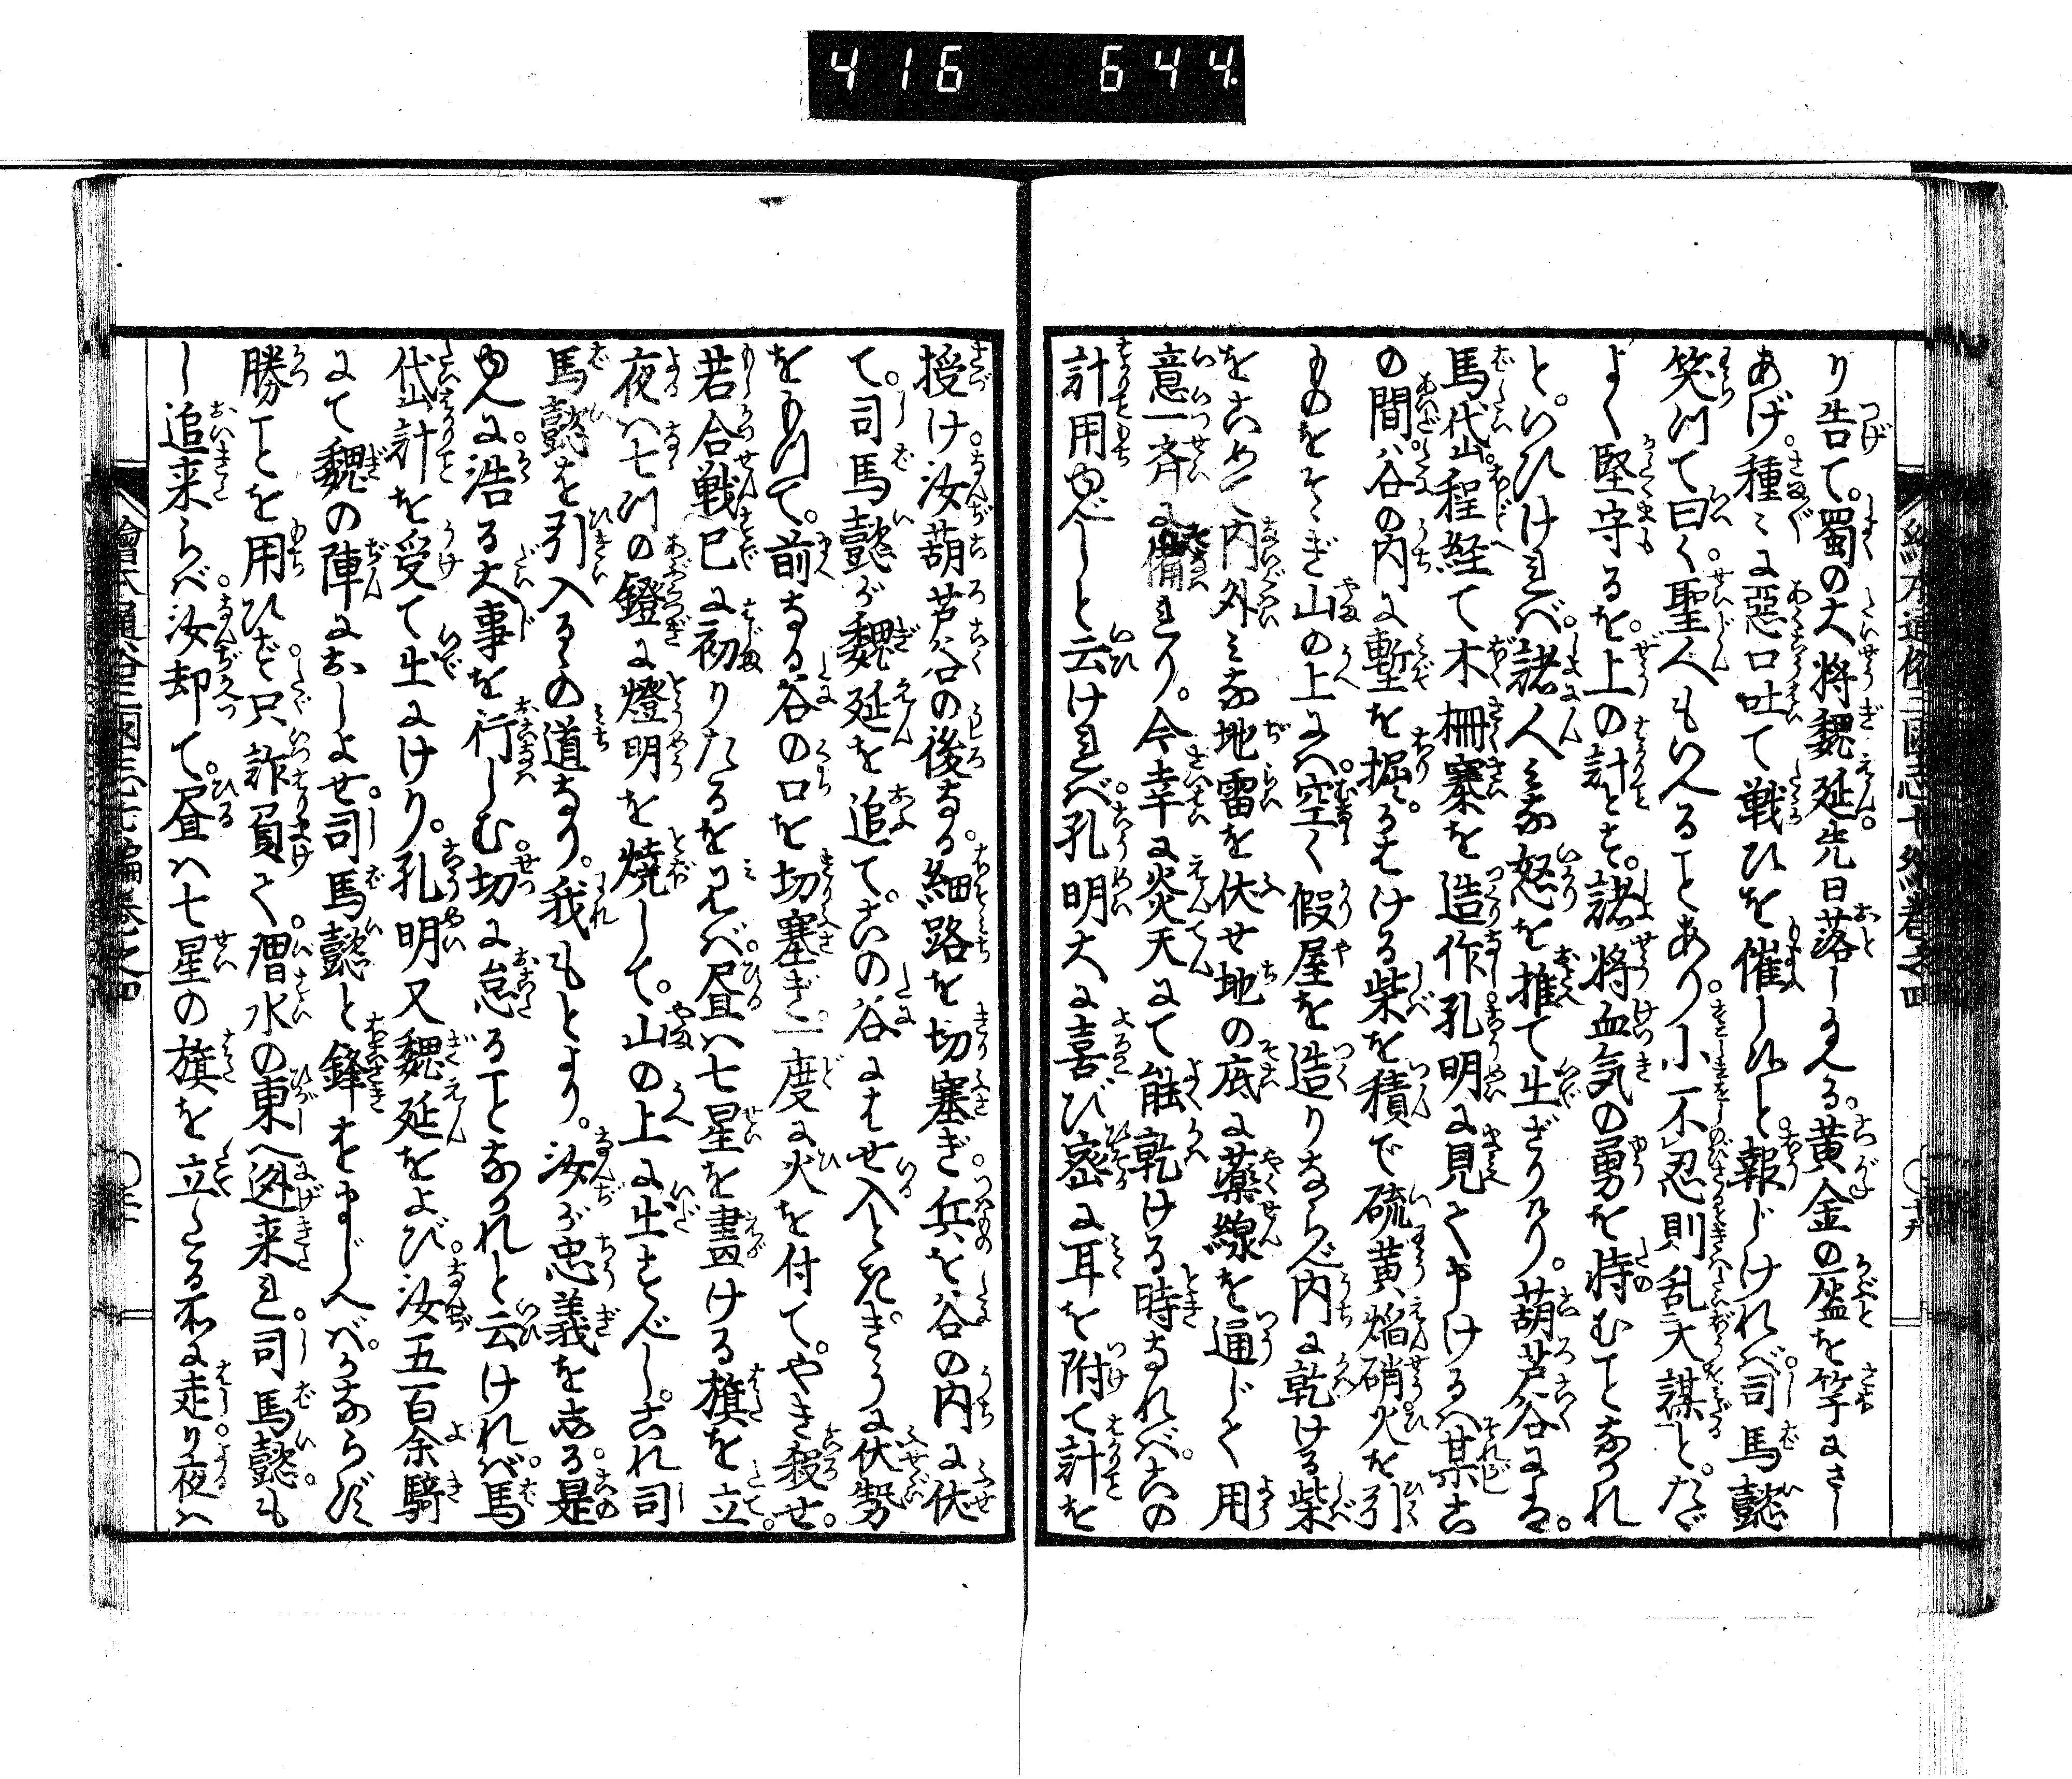 416 644
り告て。蜀の大将魏延。先日落しゝる。黄金の盔を竿にさし
あげ。種〻に惡口吐て戦ひを催しぬと。報じければ。司馬懿
笑つて曰く。聖人もいへることあり。小不忍則乱大謀と。たゞ
よく堅守るを。上の計とす。諸将血気の勇を恃むことなかれ
と。いひければ。諸人みな怒を推て出ざりけり。葫芦谷にある。
馬岱。程経て木柵寨を造作。孔明に見えて申けるハ。某この
の間。谷の内に塹を掘。るをける柴を積で硫黄焔硝火を引
ものをそゝぎ山の上にハ。空く假屋を造りならべ内に乾ける柴
をこめて内外みな地雷を伏せ地の底に藥線を通じて用
意一斉に備れり。今幸に炎天にて能乾ける時なれば。この
計用ゆべしと云ければ。孔明大に喜び密に耳を附て計を
授け。汝葫芦谷の後なる。細路を切塞ぎ。兵を谷の内に伏
て。司馬懿が魏延を追て。この谷にはせ入とき。きうに伏勢
をもつて。前なる谷の口を切塞ぎ。一度に火を付て。やき殺せ。
若合戦已に初りたるを見ば。昼ハ七星を畫ける旗を立。
夜ハ七つの鐙に燈明を焼して。山の上に出すべし。これ司
馬懿を引入るゝの道なり。我もとより。汝が忠義を志る。是
ゆへに。浩る大事を行しむ。切に怠ることなかれと云ければ。馬
岱計を受て出にけり。孔明又魏延をよび。汝五百余騎
にて魏の陣におしよせ。司馬懿と鋒をまじへば。かならず
勝ことを用ひず。只詐負て。渭水の東へ迯来れ。司馬懿も
し追来らば。汝却て。昼ハ七星の旗を立たる所に走り。夜ハ